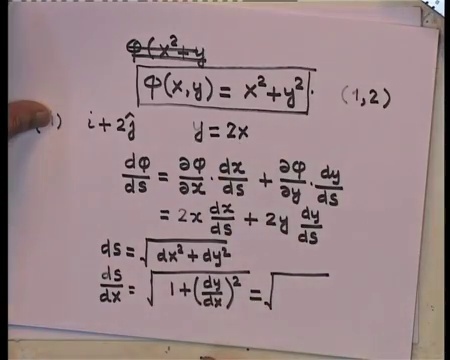 φ(x²+y
φ(x,y) = x²+y². (1,2)
) i+2ĵ y=2x
dφ/ds = ∂φ/∂x · dx/ds + ∂φ/∂y · dy/ds
= 2x dx/ds + 2y dy/ds
ds = √(dx²+dy²)
ds/dx = √(1+(dy/dx)²) = √